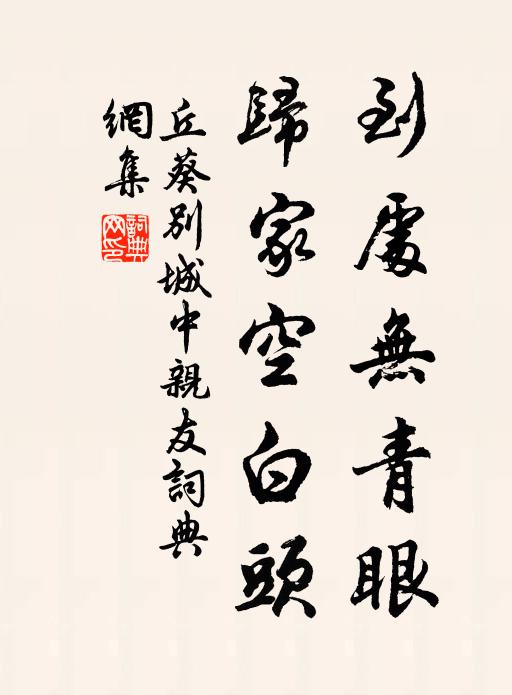 到處無青眼
歸家空白頭
丘葵別城中親友詞典
網集
詞典網印